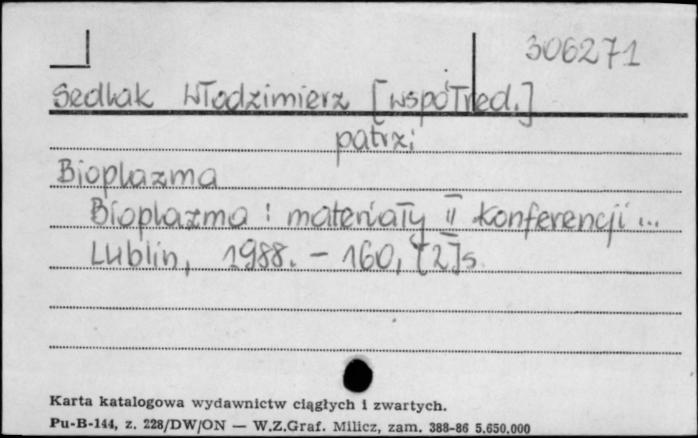 306271
Sedlak Włodzimierz [współred.]
patrz:
Bioplazma
Bioplazma : materiały II konferencji ...
Lublin, 1988. - 160, [2]s.
Karta katalogowa wydawnictw ciągłych i zwartych.
Pu-B-144, z. 228/DW/ON — W.Z.Graf. Milicz, zam. 388-86 5.650.000